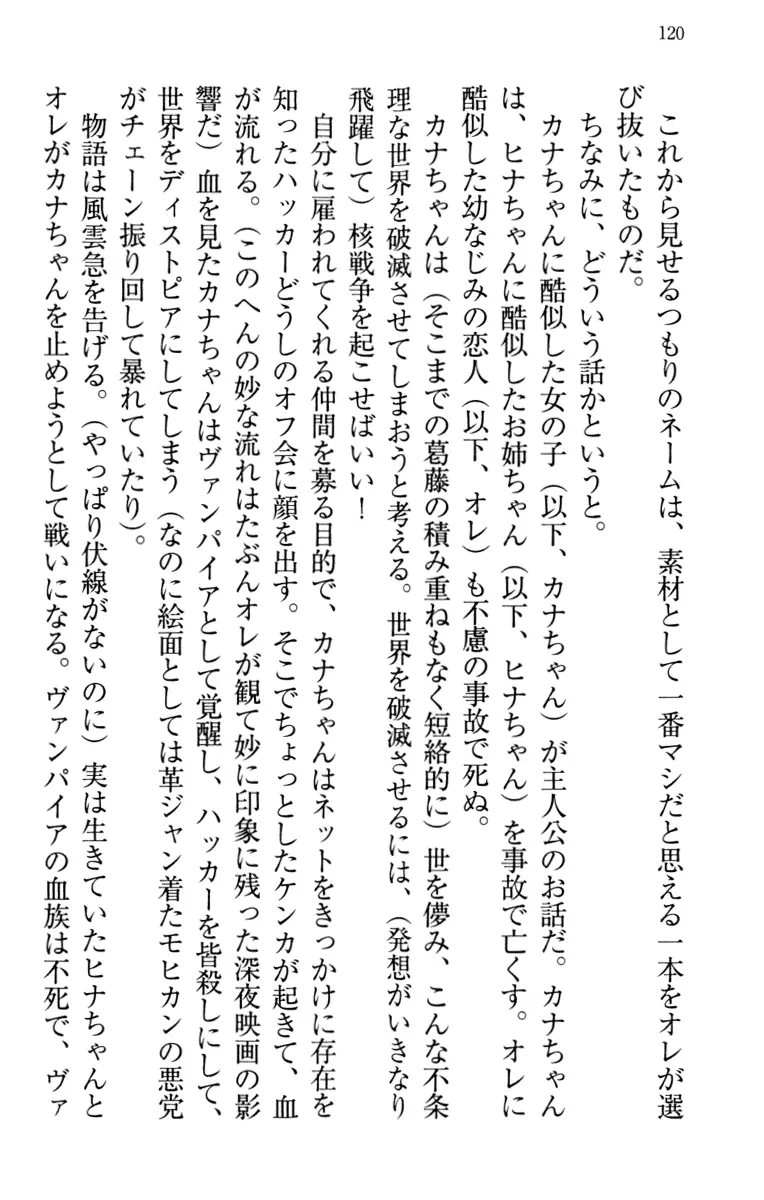 120
これから見せるつもりのネームは、素材として一番マシだと思える一本をオレが選
び抜いたものだ。
ちなみに、どういう話かというと。
カナちゃんに酷似した女の子（以下、カナちゃん）が主人公のお話だ。カナちゃん
は、ヒナちゃんに酷似したお姉ちゃん（以下、ヒナちゃん）を事故で亡くす。オレに
酷似した幼なじみの恋人（以下、オレ）も不慮の事故で死ぬ。
カナちゃんは（そこまでの葛藤の積み重ねもなく短絡的に）世を儚み、こんな不条
理な世界を破滅させてしまおうと考える。世界を破滅させるには、（発想がいきなり
飛躍して）核戦争を起こせばいい！
自分に雇われてくれる仲間を募る目的で、カナちゃんはネットをきっかけに存在を
知ったハッカーどうしのオフ会に顔を出す。そこでちょっとしたケンカが起きて、血
が流れる。（このへんの妙な流れはたぶんオレが観て妙に印象に残った深夜映画の影
響だ）血を見たカナちゃんはヴァンパイアとして覚醒し、ハッカーを皆殺しにして、
世界をディストピアにしてしまう（なのに絵面としては革ジャン着たモヒカンの悪党
がチェーン振り回して暴れていたり）。
物語は風雲急を告げる。（やっぱり伏線がないのに）実は生きていたヒナちゃんと
オレがカナちゃんを止めようとして戦いになる。ヴァンパイアの血族は不死で、ヴァ